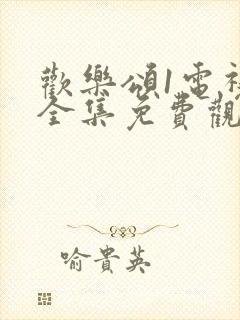 歡樂頌1電視
全集免費觀
喻貴英